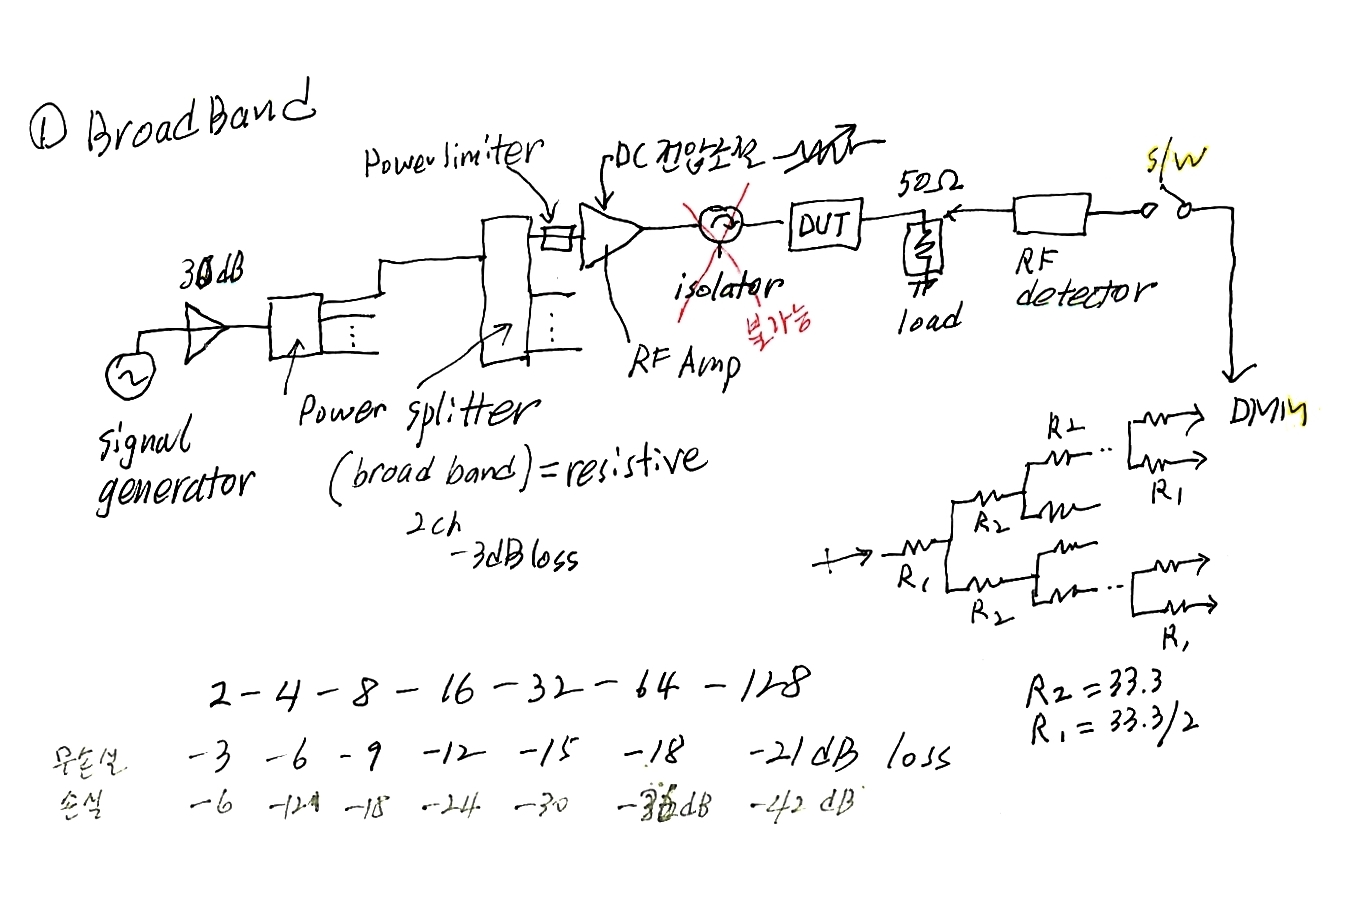 ① BroadBand
Power limiter
DC 전압조절
S/W
50Ω
30dB
DUT
isolator
불가능
RF
detector
load
RF Amp
Power splitter
(broad band) = resistive
2ch
-3dB loss
signal
generator
DMM
R2
R2
R1
R1
R2
R1
2 - 4 - 8 - 16 - 32 - 64 - 128
무손실 -3 -6 -9 -12 -15 -18 -21dB loss
손실 -6 -12 -18 -24 -30 -36dB -42 dB
R2 = 33.3
R1 = 33.3/2